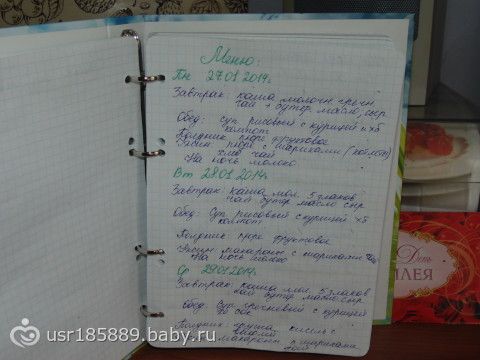 Меню:
Пн 27.01.2014г
Завтрак: каша молочн. гречн.
чай + бутер масло, сыр
Обед: Суп рисовый с курицей + хб
компот
Полдник: пюре фруктовое
Ужин пюре с шариками (котлета)
хлеб чай
На ночь молоко
Вт 28.01.2014г
Завтрак: каша мол. 5 злаков
чай бутер масло сыр
Обед: Суп рисовый с курицей хб
компот
Полдник: пюре фруктовое
Ужин макароны с шариками чай
На ночь молоко
Ср 29.01.2014г.
Завтрак: каша мол. 5 злаков
чай бутер масло сыр
Обед: Суп гречневый с курицей
хб сок
Полдник: груша, кисель с
Ужин
макароны с шариками
чай
День
ИЛЕЯ
usr185889.baby.ru